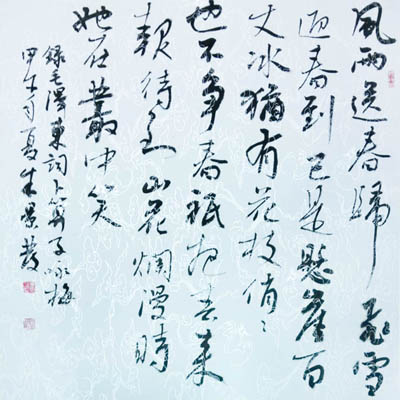 風雨送春歸飛雪
迎春到已是懸崖百
丈冰猶有花枝俏〻
也不爭春祇把春来
報待到山花爛漫時
她在叢中笑
錄毛澤東詞卜算子咏梅
甲午夏朱景